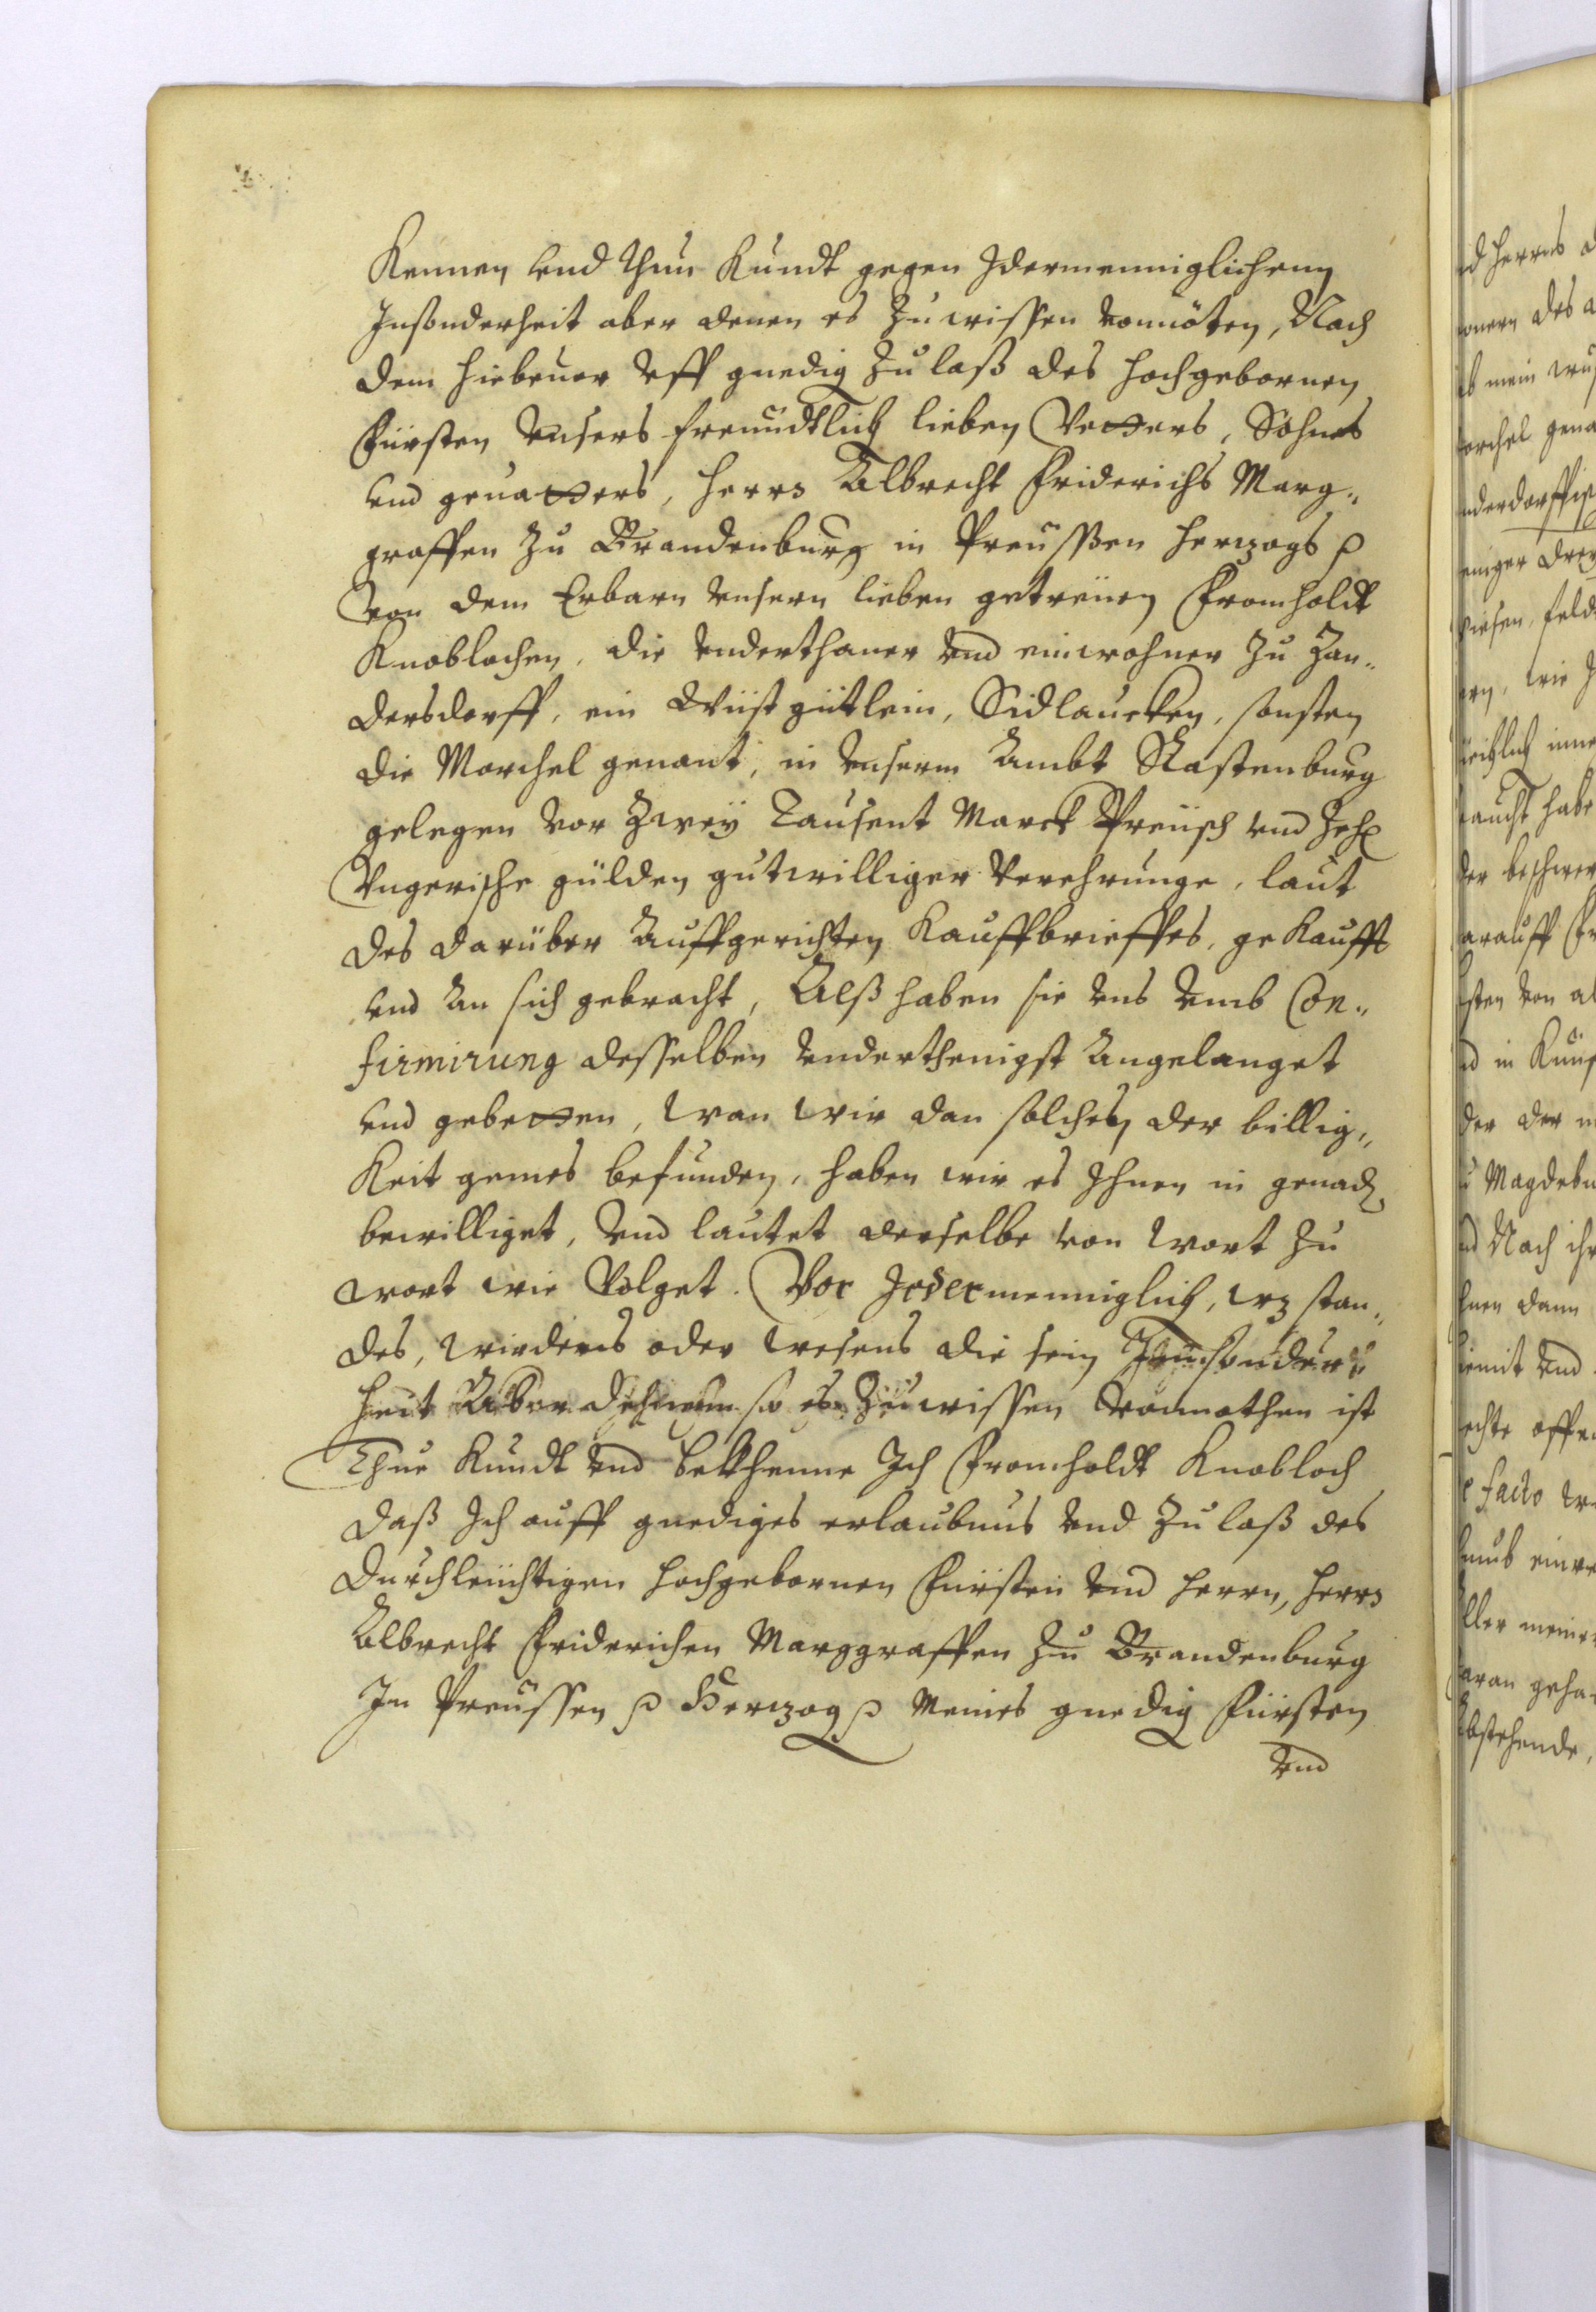 Kennen vnd thun Kundt gegen Idermenniglichenn
Insonderheit aber denen es zu wissen vonnöten, Nach
dem hiebeuor vff gnedig zulaß des hochgebornen
Fürsten vnsers freundtlich lieben Vettern, Sohnes
vnd geuattern, herrn Albrecht Friderichs Marg¬
graffen zu Brandenburg in Preussen herzogs p
von dem Erbarn vnsern lieben getreuen Fromholdt
Knoblochen, die vnderthaner vnd einwohner zu Zan¬
dersdorff, ein Wüst gütlein, Sidlaucken, sonsten
die Morchel genant, in vnserm Ambt Rastenburg
gelegen vor Zwey Tausent Marck Preusch vnd Zehen
Vngerische gülden gutwilliger Verehrunge, laut
des darüber Auffgerichten Kauffbrieffes, gekaufft
vnd An sich gebracht, Alß haben sie vns vmb Con¬
firmirung desselben vnderthenigst Angelanget
vnd gebetten, wan wir dan solches der billig¬
Keit gemes befunden, haben wir es Ihnen in genaden
bewilliget, vnd lautet derselbe von Wort zu
wort wie Volget. Vor Jedermenniglich, wz stan¬
des, wirdens oder wesens die sein Innsonder¬
heit Aber dehnenn so es zuwissen vonnothen ist
Thue Kundt vnd bekhenne Ich Fromholdt Knobloch
daß Ich auff gnediges erlaubnus vnd zulaß des
Durchleuchtigen hochgebornen Fürsten vnd herrn, herrn
Albrecht Friderichen Marggraffen zu Brandenburg
In Preussen p Herzog p Meines gnedig Fürsten
vnd